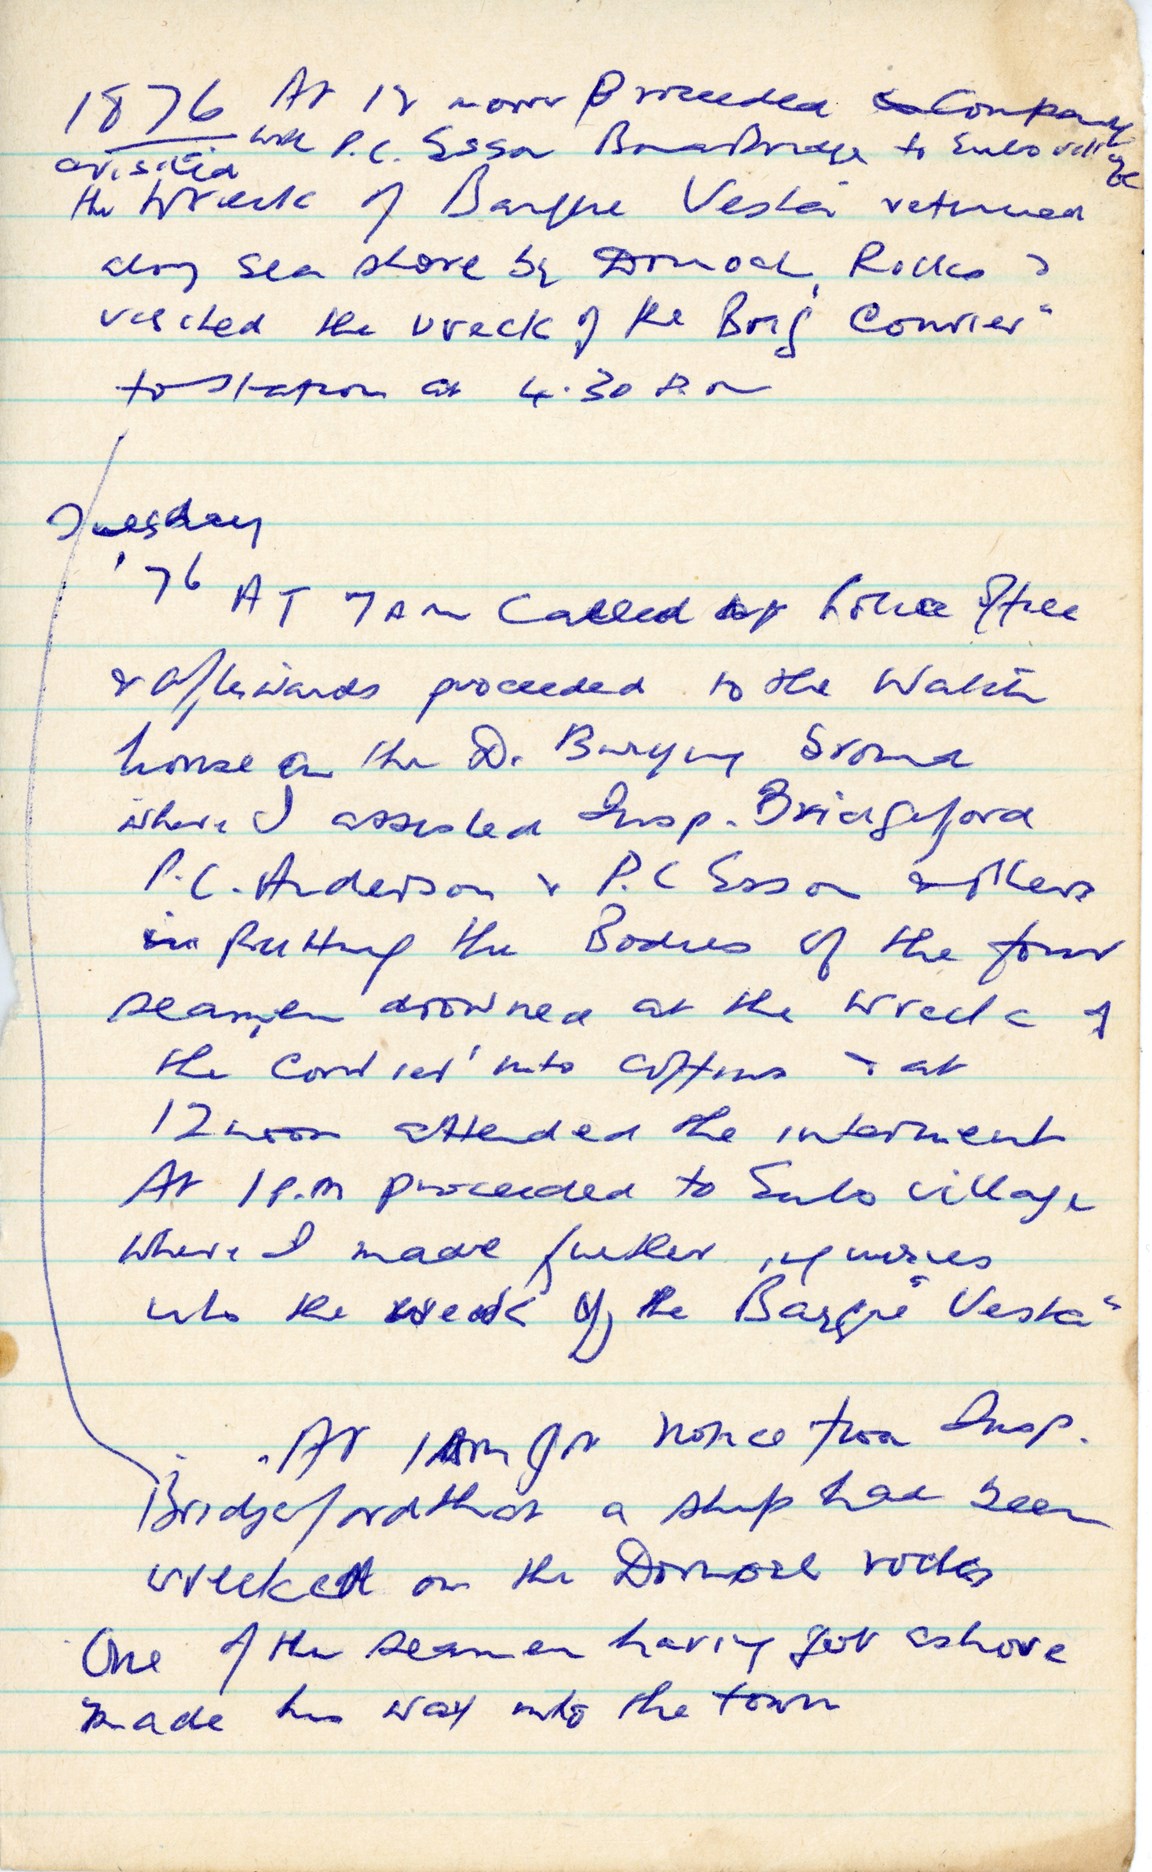 1876 At 12 noon Proceeded Company
with P.C. Esson to village
& visited
the Wreck of Barque Vesta returned
along sea shore by Rocks &
visited the wreck of the Brig Courier"
to Station at 4.30 P.m
Tuesday
'76 AT 7 Am Called at Police Office
& afterwards proceeded to the Watch
house on the D. Burying Ground
where I assisted Insp. Bridgeford
P.C. Anderson & P.C Esson & others
in putting the Bodies of the four
seamen drowned at the Wreck of
the Courier' into coffins & at
12 noon attended the interment
At 1 P.m proceeded to village
where I made further inquiries
into the wreck of the Barque "Vesta"
At 1 Am got notice from Insp.
Bridgeford that a ship had been
wrecked on the rocks
One of the seamen having got ashore
made his way into the town